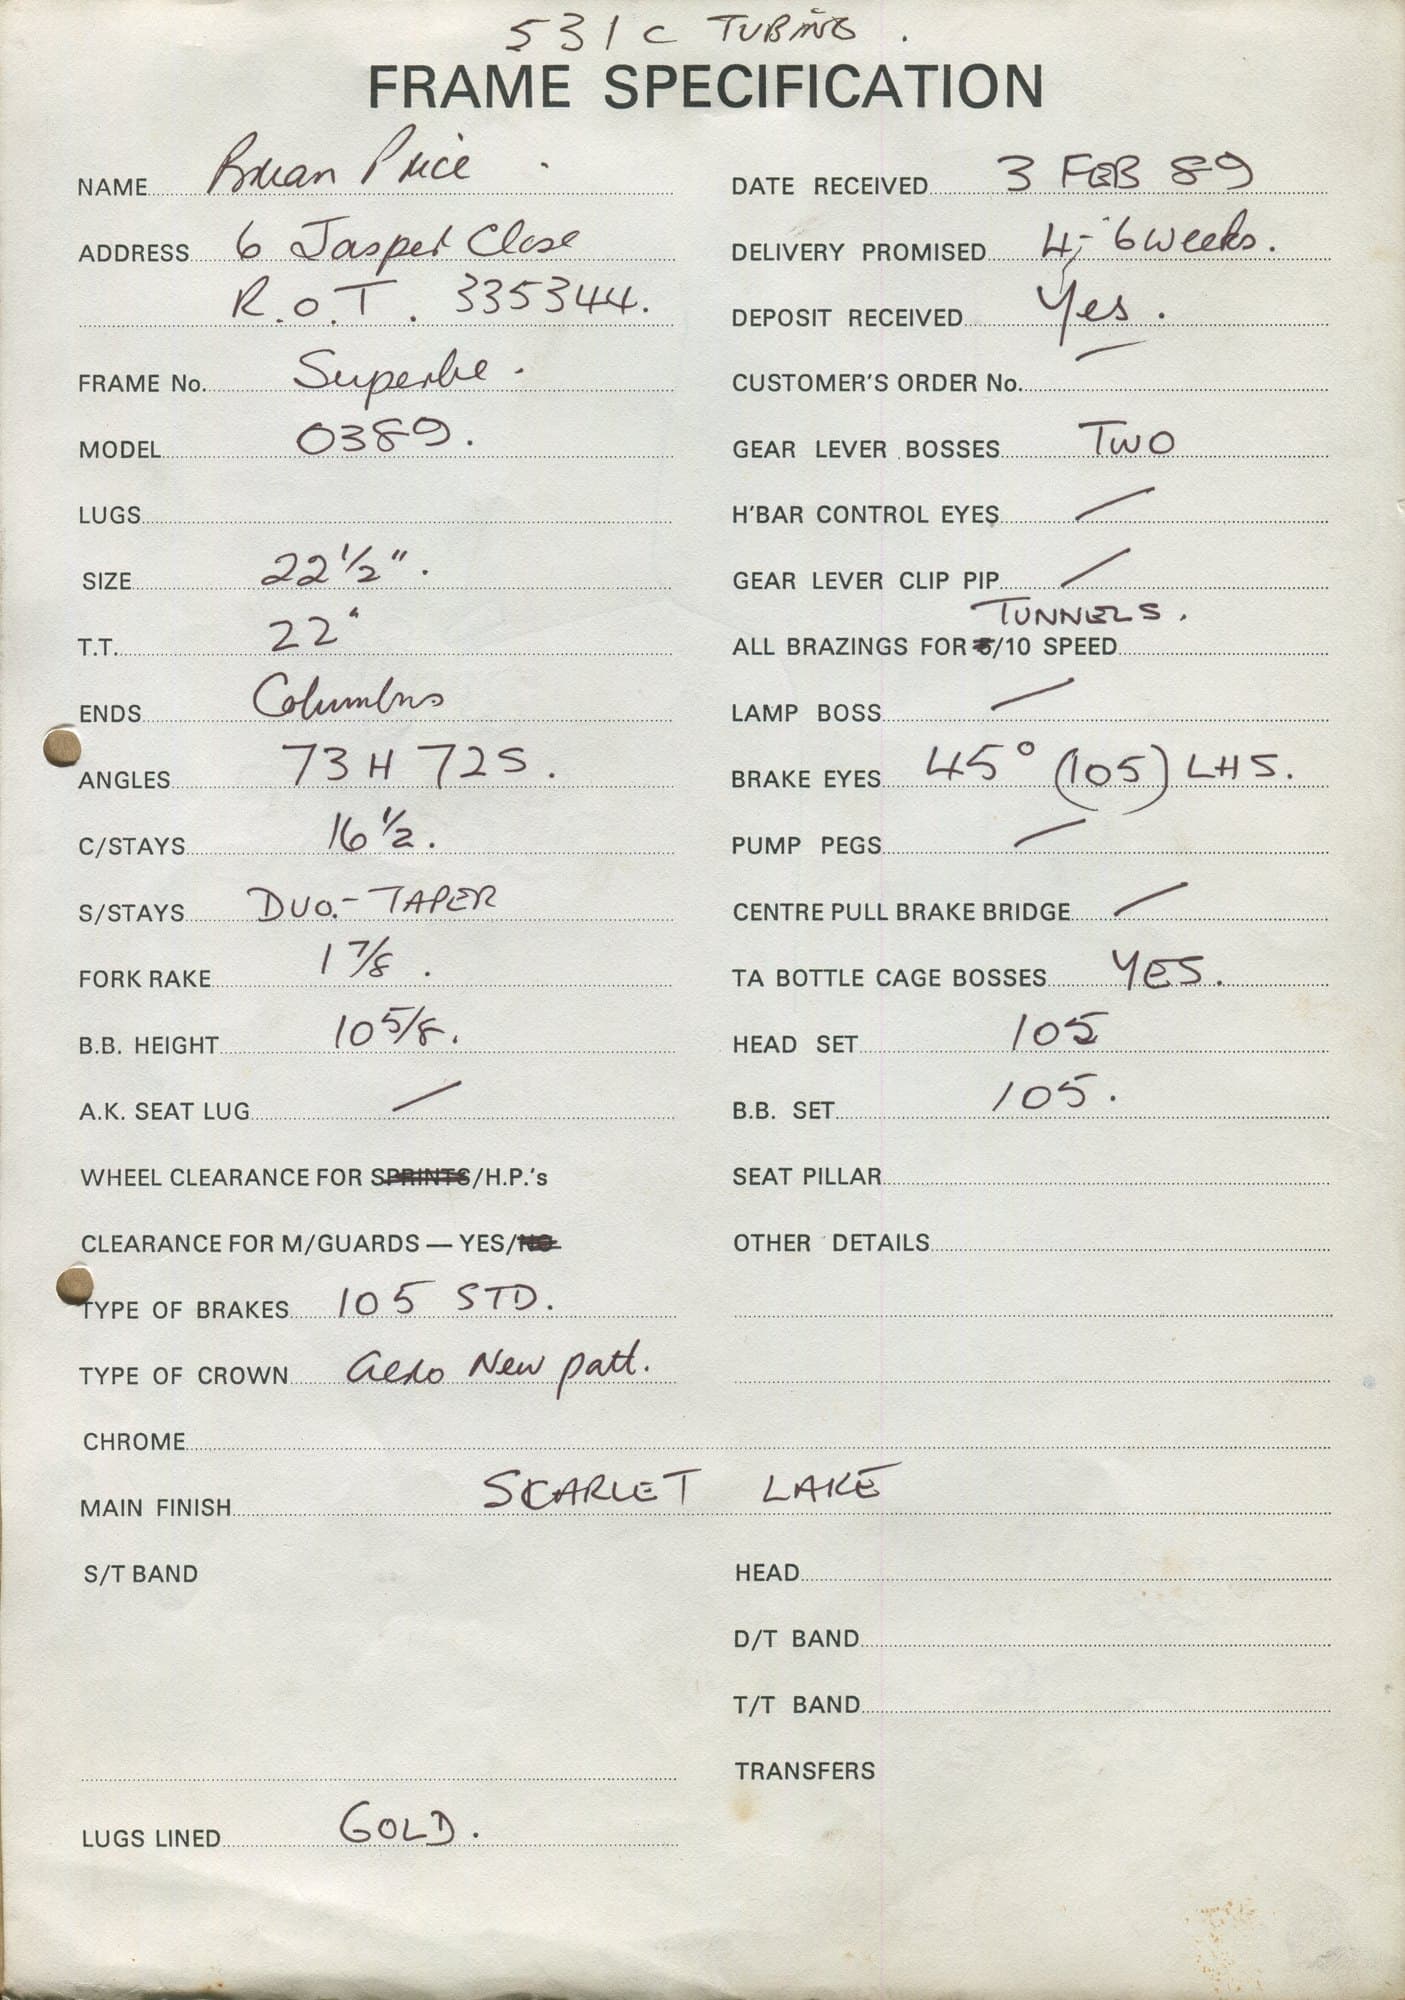 531c TUBING.
FRAME SPECIFICATION
NAME Brian Price
ADDRESS 6 Jasper Close
R.O.T. 335344.
FRAME No. Superbe.
MODEL 0389.
LUGS
SIZE 22 1/2".
T.T. 22"
ENDS Columbus
ANGLES 73 H 72 S.
C/STAYS 16 1/2.
S/STAYS DUO-TAPER
FORK RAKE 1 7/8.
B.B. HEIGHT 10 5/8.
A.K. SEAT LUG /
WHEEL CLEARANCE FOR SPRINTS/H.P.'s
CLEARANCE FOR M/GUARDS — YES/NO
TYPE OF BRAKES 105 STD.
TYPE OF CROWN aero New patt.
DATE RECEIVED 3 FEB 89
DELIVERY PROMISED 4-6 weeks.
DEPOSIT RECEIVED Yes.
CUSTOMER'S ORDER No. —
GEAR LEVER BOSSES TWO
H'BAR CONTROL EYES /
GEAR LEVER CLIP PIP /
TUNNELS.
ALL BRAZINGS FOR 5/10 SPEED
LAMP BOSS /
BRAKE EYES 45° (105) LHS.
PUMP PEGS /
CENTRE PULL BRAKE BRIDGE /
TA BOTTLE CAGE BOSSES YES.
HEAD SET 105
B.B. SET 105.
SEAT PILLAR
OTHER DETAILS
CHROME
MAIN FINISH SCARLET LAKE
S/T BAND
LUGS LINED GOLD.
HEAD
D/T BAND
T/T BAND
TRANSFERS